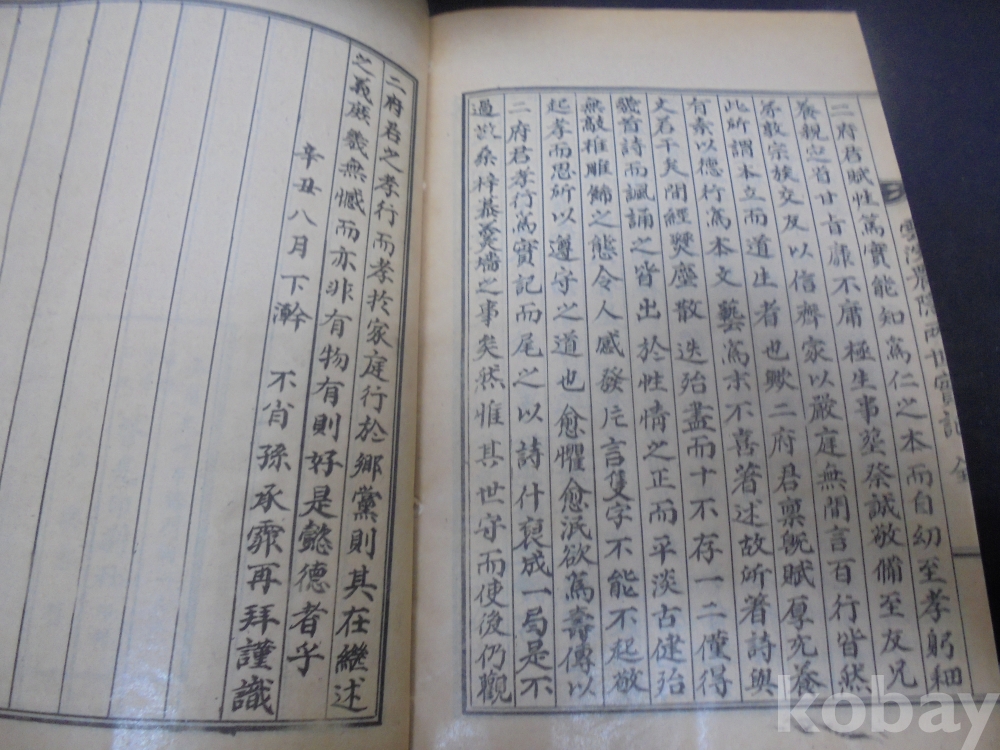 二府君賦性篤實能知爲仁之本而自幼至孝躬細
養親定省甘旨靡不庸極生事葬祭誠敬備至友兄
敎宗族交友以信齊家以嚴庭無間言百行皆然
此所謂本立而道生者也歟二府君稟旣賦厚充養
有素以德行爲本文藝爲末不喜著述故所著詩與
文若干矣閒經變塵散迭殆盡而十不存一二僅得
發首詩而諷誦之皆出於性情之正而平淡古健殆
無敵椎雕飾之態令人感發片言隻字不能不起敬
起孝而思所以遵守之道也愈懼愈泯欲爲壽傳以
二府君孝行爲實記而尾之以詩什裒成一局是不
過故桑梓慕羹墻之事矣然惟其世守而使後仍觀
兩世實記 全
二府君之孝行而孝於家庭行於鄉黨則其在繼述
之義庶幾無憾而亦非有物有則好是懿德者乎
辛丑八月下澣 不肖孫承霏再拜謹識
kobay